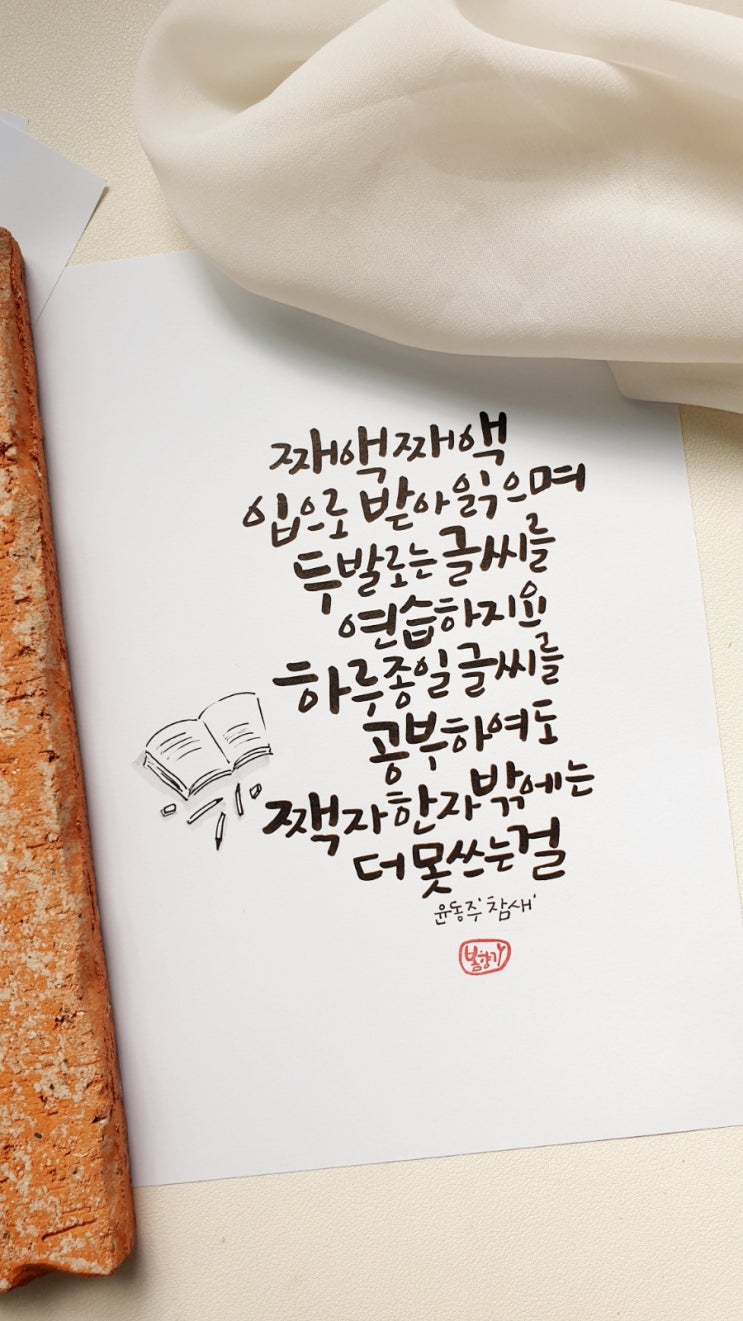 째액째액
입으로 받아 읽으며
두발로는 글씨를
연습하지요
하루종일 글씨를
공부하여도
짹자 한자 밖에는
더 못쓰는걸
윤동주 '참새'
봄향기